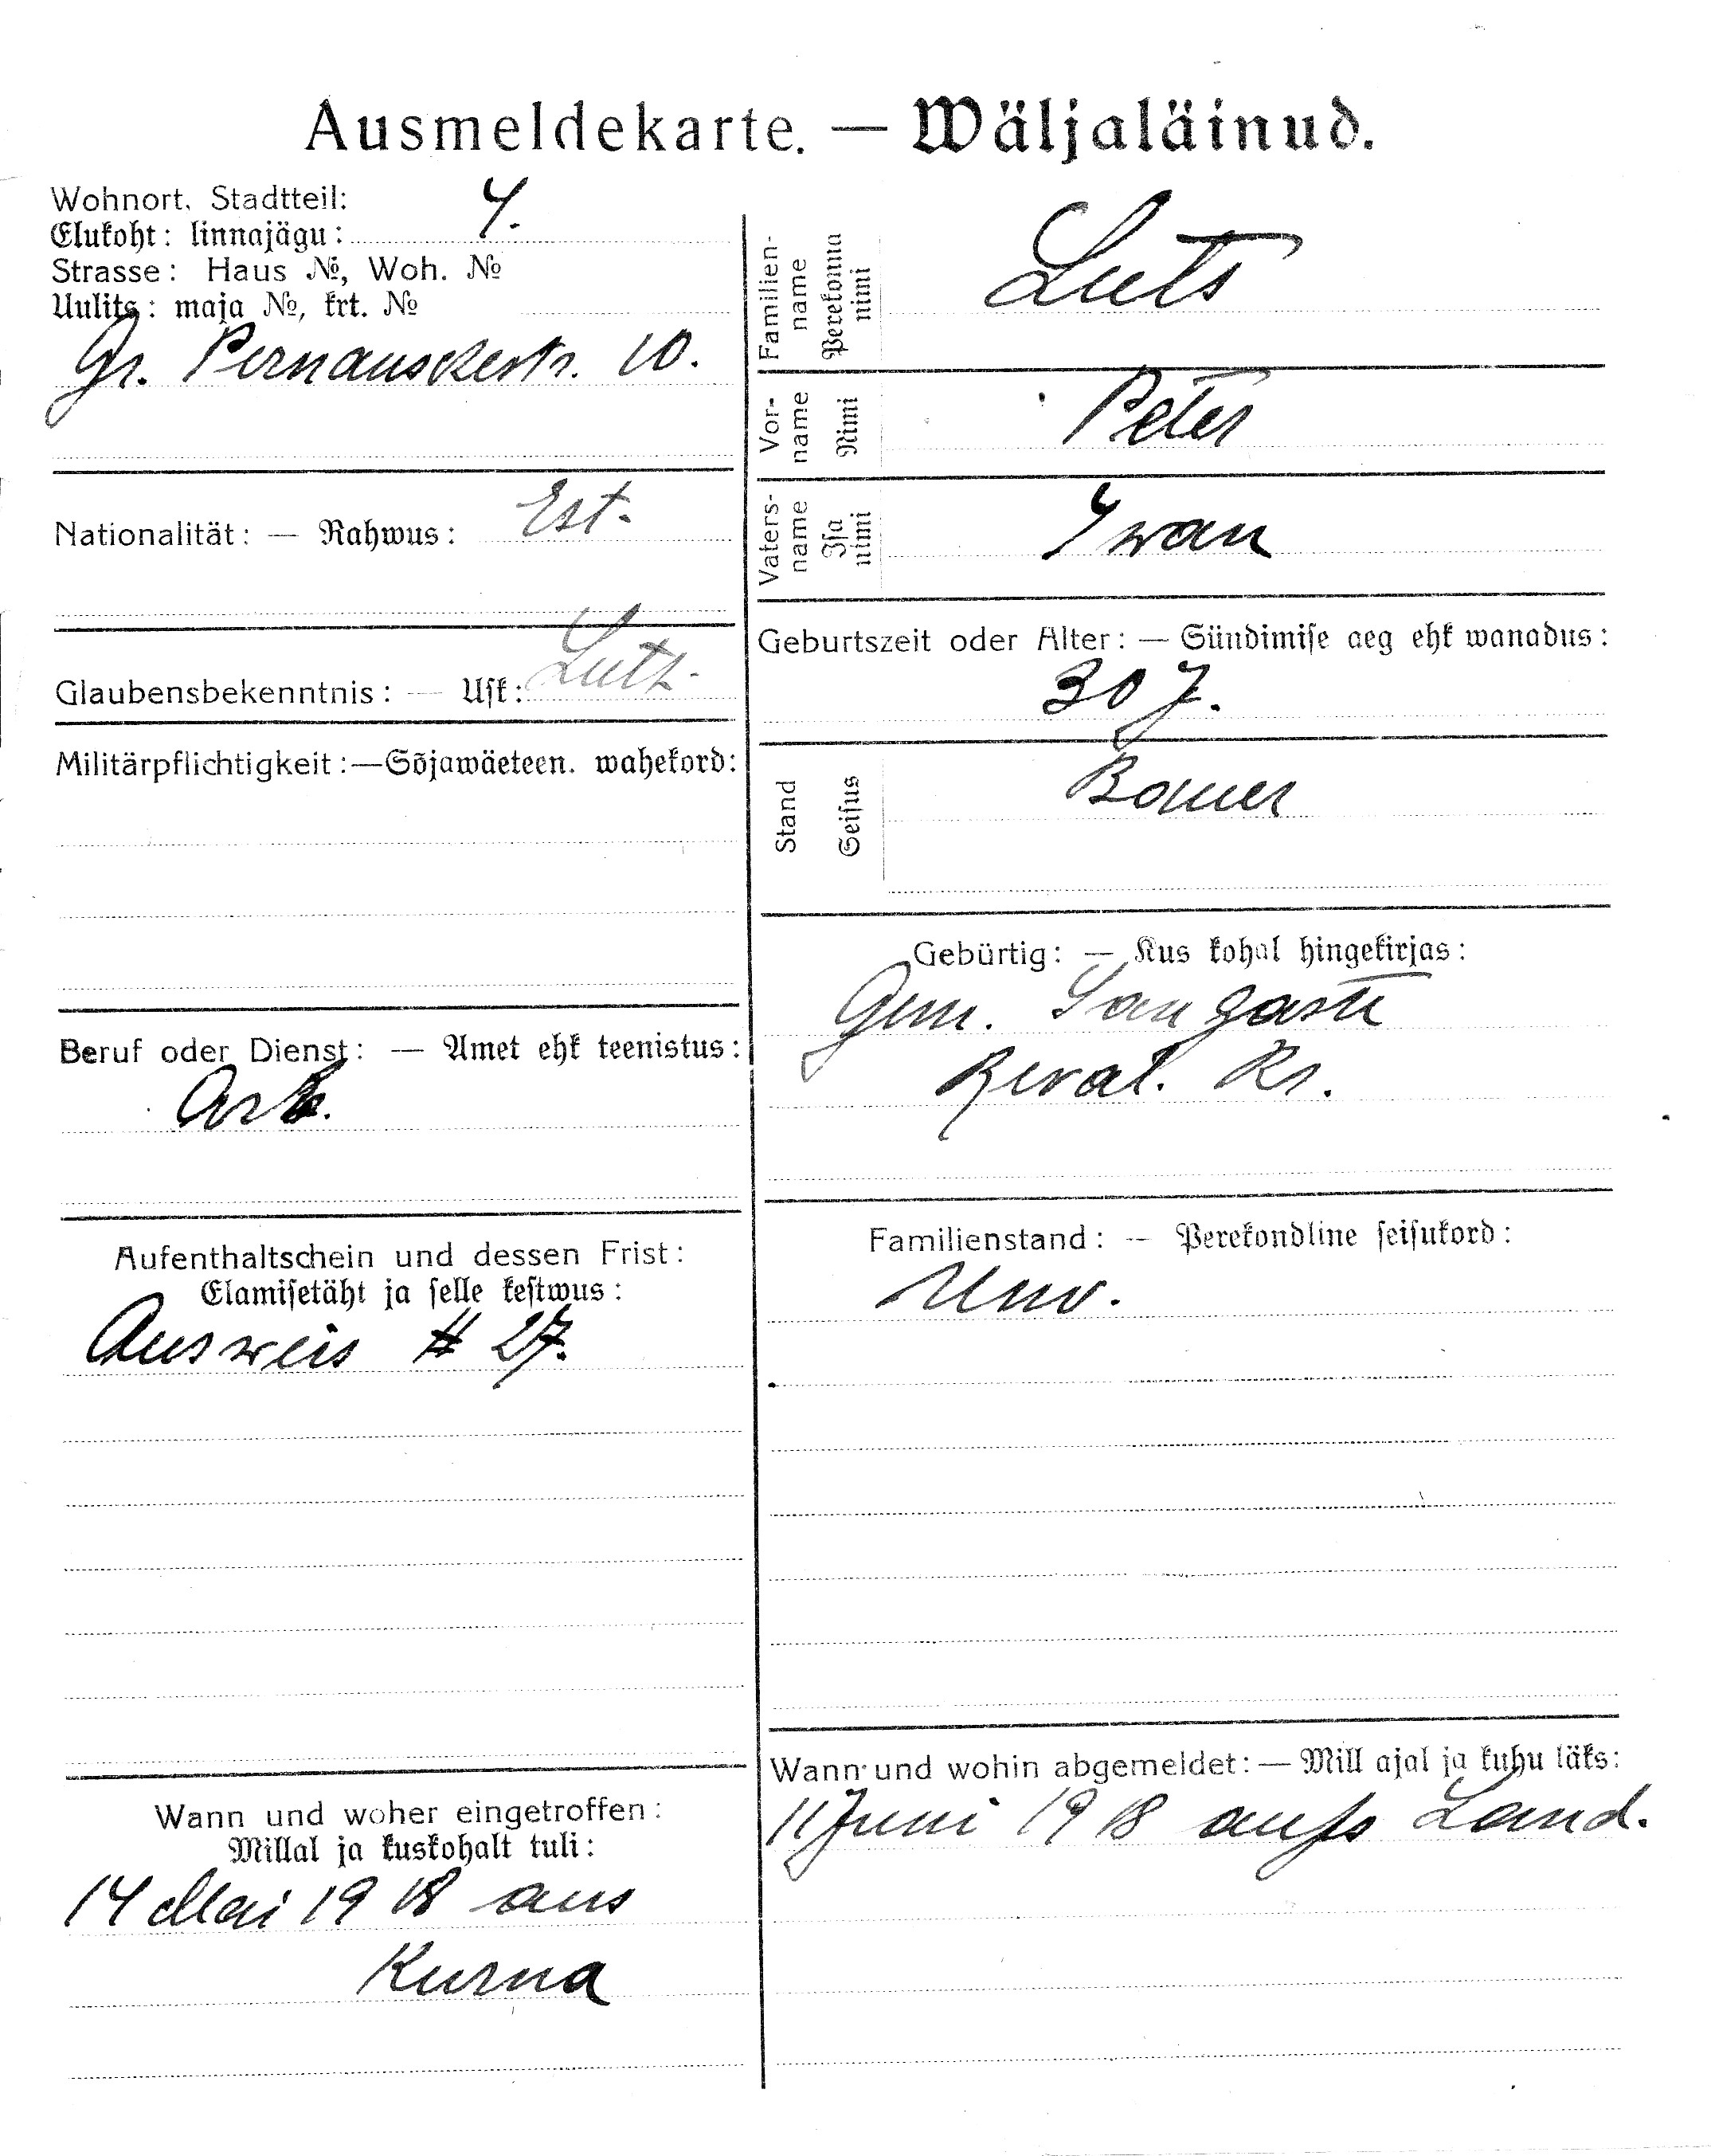 Ausmeldekarte. — Wäljaläinud.
Wohnort, Stadtteil:
Elukoht: linnajägu: 4.
Strasse: Haus №, Woh. №
Uulits: maja №, krt. №
Gr. Pernauschestr. 10.
Nationalität: — Rahwus: Est.
Glaubensbekenntnis: — Usk: Luth.
Militärpflichtigkeit:—Sõjawäeteen. wahekord:
Beruf oder Dienst: — Amet ehk teenistus:
Arb.
Aufenthaltschein und dessen Frist:
Elamisetäht ja selle kestwus:
Ausweis # 27.
Wann und woher eingetroffen:
Millal ja kuskohalt tuli:
14 Mai 1918 aus
Kurna
Familien-
name
Perekonna
nimi
Luts
Vor-
name
Nimi
Peter
Vaters-
name
Isa
nimi
Iwan
Geburtszeit oder Alter: — Sündimise aeg ehk wanadus:
30 J.
Stand
Seisus
Bauer
Gebürtig: — Kus kohal hingekirjas:
Gem. Sangaste
Reval. Kr.
Familienstand: — Perekondline seisukord:
Unv.
Wann und wohin abgemeldet: — Mill ajal ja kuhu läks:
11 Juni 1918 aufs Land.